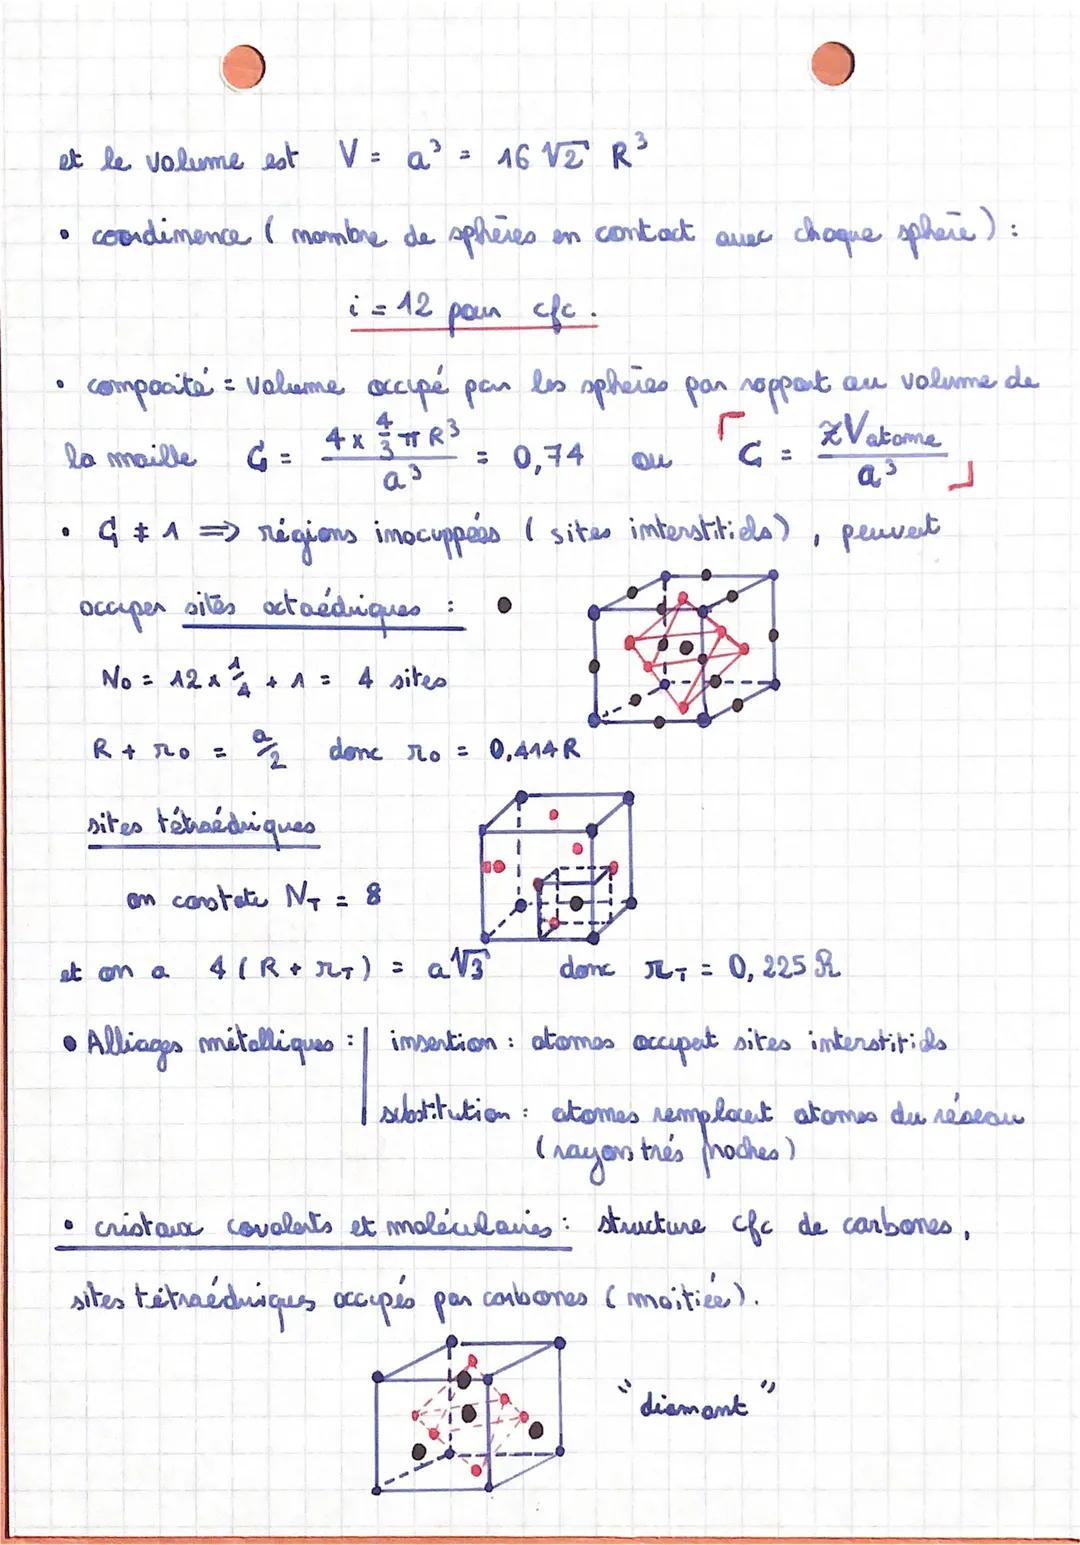 et le volume est V = a³ = 16 √2 R³
• coordinence ( nombre de sphères en contact avec chaque sphère ) :
i = 12 pour cfc .
• compacité = volume occupé par les sphères par rapport au volume de
la maille C = (4 x 4/3 π R³)/a³ = 0,74 ou ⌈ C = zVatome/a³ ⌋
• C ≠ 1 => régions inocuppées ( sites interstitiels ) , peuvent
occuper sites octaédriques :
N₀ = 12 x 1/4 + 1 = 4 sites
R + r₀ = a/2 donc r₀ = 0,414 R
sites tétraédriques
on constate N_T = 8
et on a 4 ( R + r_T ) = a√3 donc r_T = 0,225 R
• Alliages métalliques : | insertion : atomes occupent sites interstitiels
substitution : atomes remplacent atomes du réseau
( rayons très proches )
• cristaux covalents et moléculaires : structure cfc de carbones ,
sites tétraédriques occupés par carbones ( moitiée ) .
"diamant"